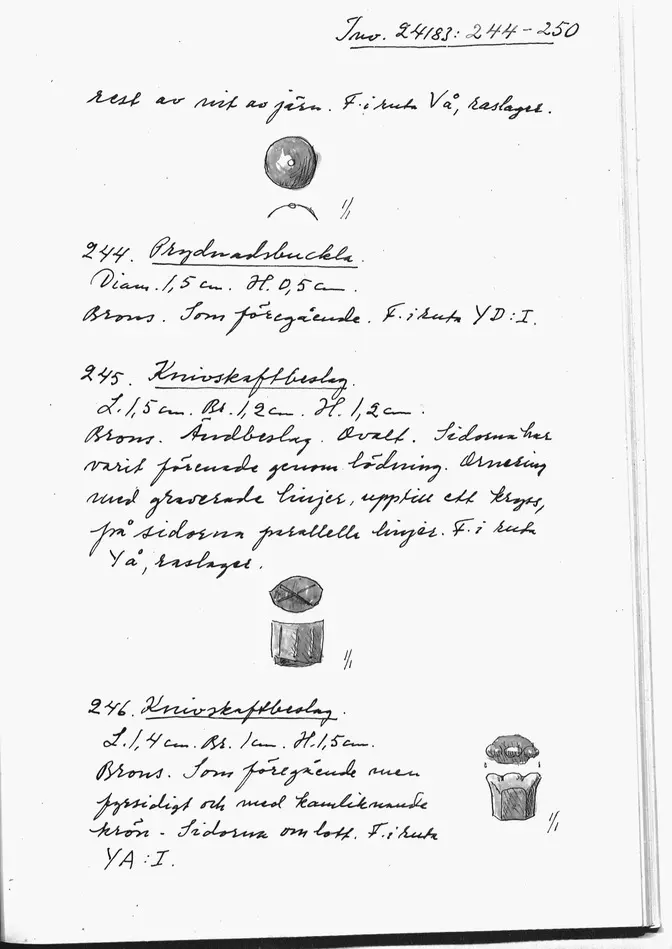 Inv. 24183: 244-250
rest av nit av järn. F. i ruta Vå, raslager.
1/1
244. Prydnadsbuckla.
Diam. 1,5 cm. H. 0,5 cm.
Brons. Som föregående. F. i ruta YD:I.
245. Knivskaftbeslag.
L. 1,5 cm. Br. 1,2 cm. H. 1,2 cm.
Brons. Ändbeslag. Ovalt. Sidorna har
varit förenade genom lödning. Ornering
med graverade linjer, upptill ett kryss,
på sidorna parallella linjer. F. i ruta
Yå, raslager.
1/1
246. Knivskaftbeslag.
L. 1,4 cm. Br. 1 cm. H. 1,5 cm.
Brons. Som föregående men
fyrsidigt och med kamliknande
krön - Sidorna om lott. F. i ruta
YA:I.
1/1